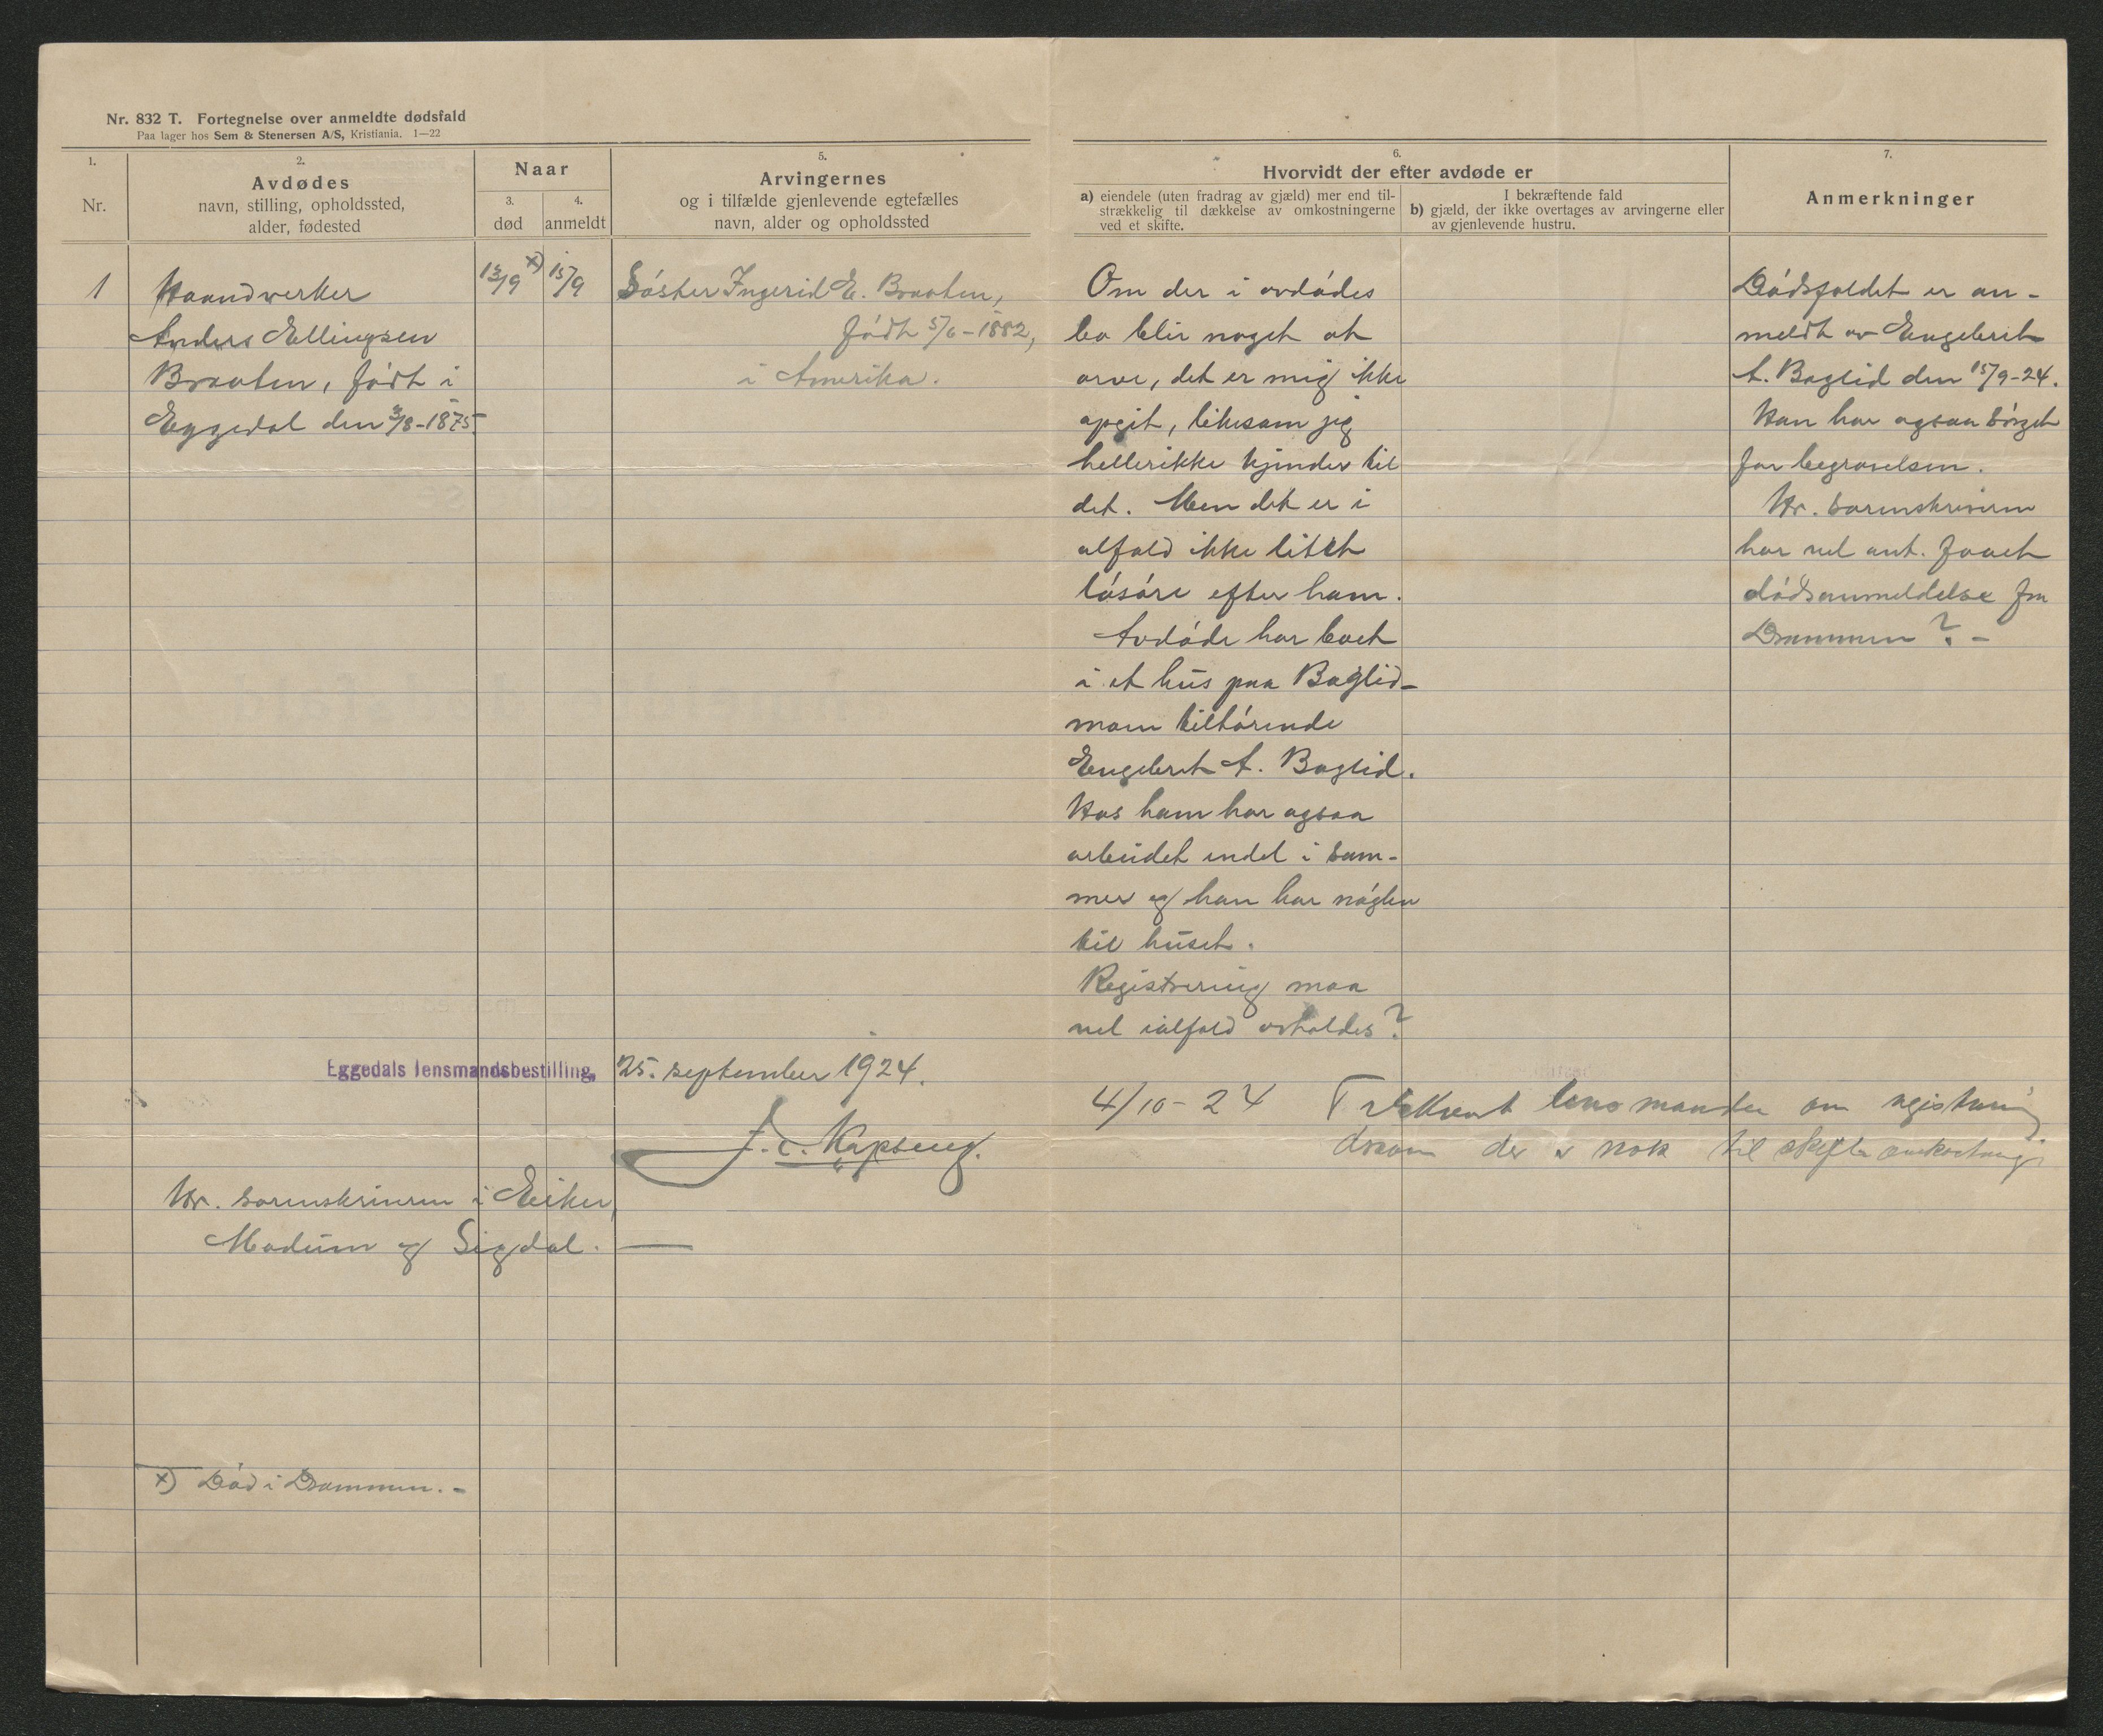 Nr. 832 T. Fortegnelse over anmeldte dødsfald
Paa lager hos Sem & Stenersen A/S, Kristiania. 1—22
1.
Nr.
2.
Avdødes
navn, stilling, opholdssted,
alder, fødested
Naar
3.
død
4.
anmeldt
5.
Arvingernes
og i tilfælde gjenlevende egtefælles
navn, alder og opholdssted
6.
Hvorvidt der efter avdøde er
a) eiendele (uten fradrag av gjæld) mer end til-
strækkelig til dækkelse av omkostningerne
ved et skifte.
I bekræftende fald
b) gjæld, der ikke overtages av arvingerne eller
av gjenlevende hustru.
7.
Anmerkninger
1
Haandverker
Anders Ellingsen
Braaten, født i
Eggedal den 3/8-1875.
13/9 x)
15/9
Søster Ingerid E. Braaten,
født 5/6-1882,
i Amerika.
Om der i avdødes
bo blir noget at
arve, det er mig ikke
opgit, likesom jeg
hellerikke kjender til
det. Men det er i
alfald ikke litet
løsøre efter ham.
Avdøde har boet
i et hus paa Baglid-
moen tilhørende
Engebret A. Baglid.
Hos ham har ogsaa
arbeidet endel i som-
mer og han har nøglen
til huset.
Registrering maa
vel ialfald avholdes?
Dødsfaldet er an-
meldt av Engebret
A. Baglid den 15/9-24.
Han har ogsaa sørget
for begravelsen.
Hr. sorenskriveren
har vel ant. faaet
dødsanmeldelse fra
Drammen? -
Eggedals lensmandsbestilling, 25. september 1924.
J. C. Kapseng.
Hr. sorenskriveren i Eiker,
Modum og Sigdal. —
4/10-24 Tilskrevet lensmanden om registrering
dersom der er nok til skifteomkostninger
x) Død i Drammen. -